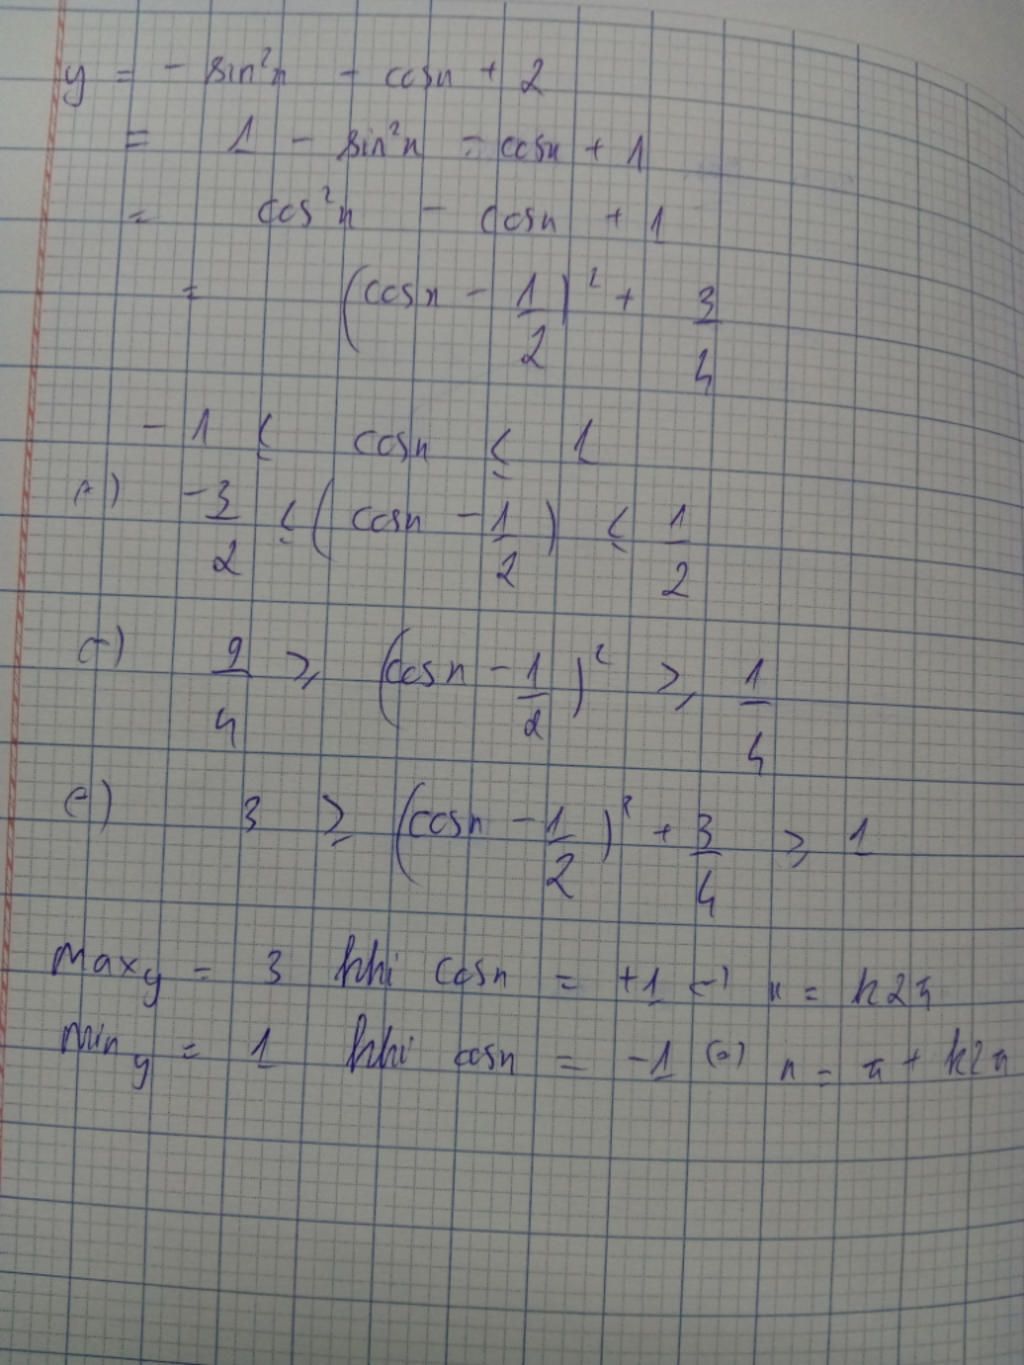 y = - sin²x - cosx + 2
= 1 - sin²x - cosx + 1
= cos²x - cosx + 1
= (cosx - 1/2)² + 3/4
-1 ≤ cosx ≤ 1
(=) -3/2 ≤ (cosx - 1/2) ≤ 1/2
(=) 9/4 ≥ (cosx - 1/2)² ≥ 1/4
(=) 3 ≥ (cosx - 1/2)² + 3/4 ≥ 1
Max y = 3 khi cosx = +1 (=) x = k2π
Min y = 1 khi cosx = -1 (=) x = π + k2π